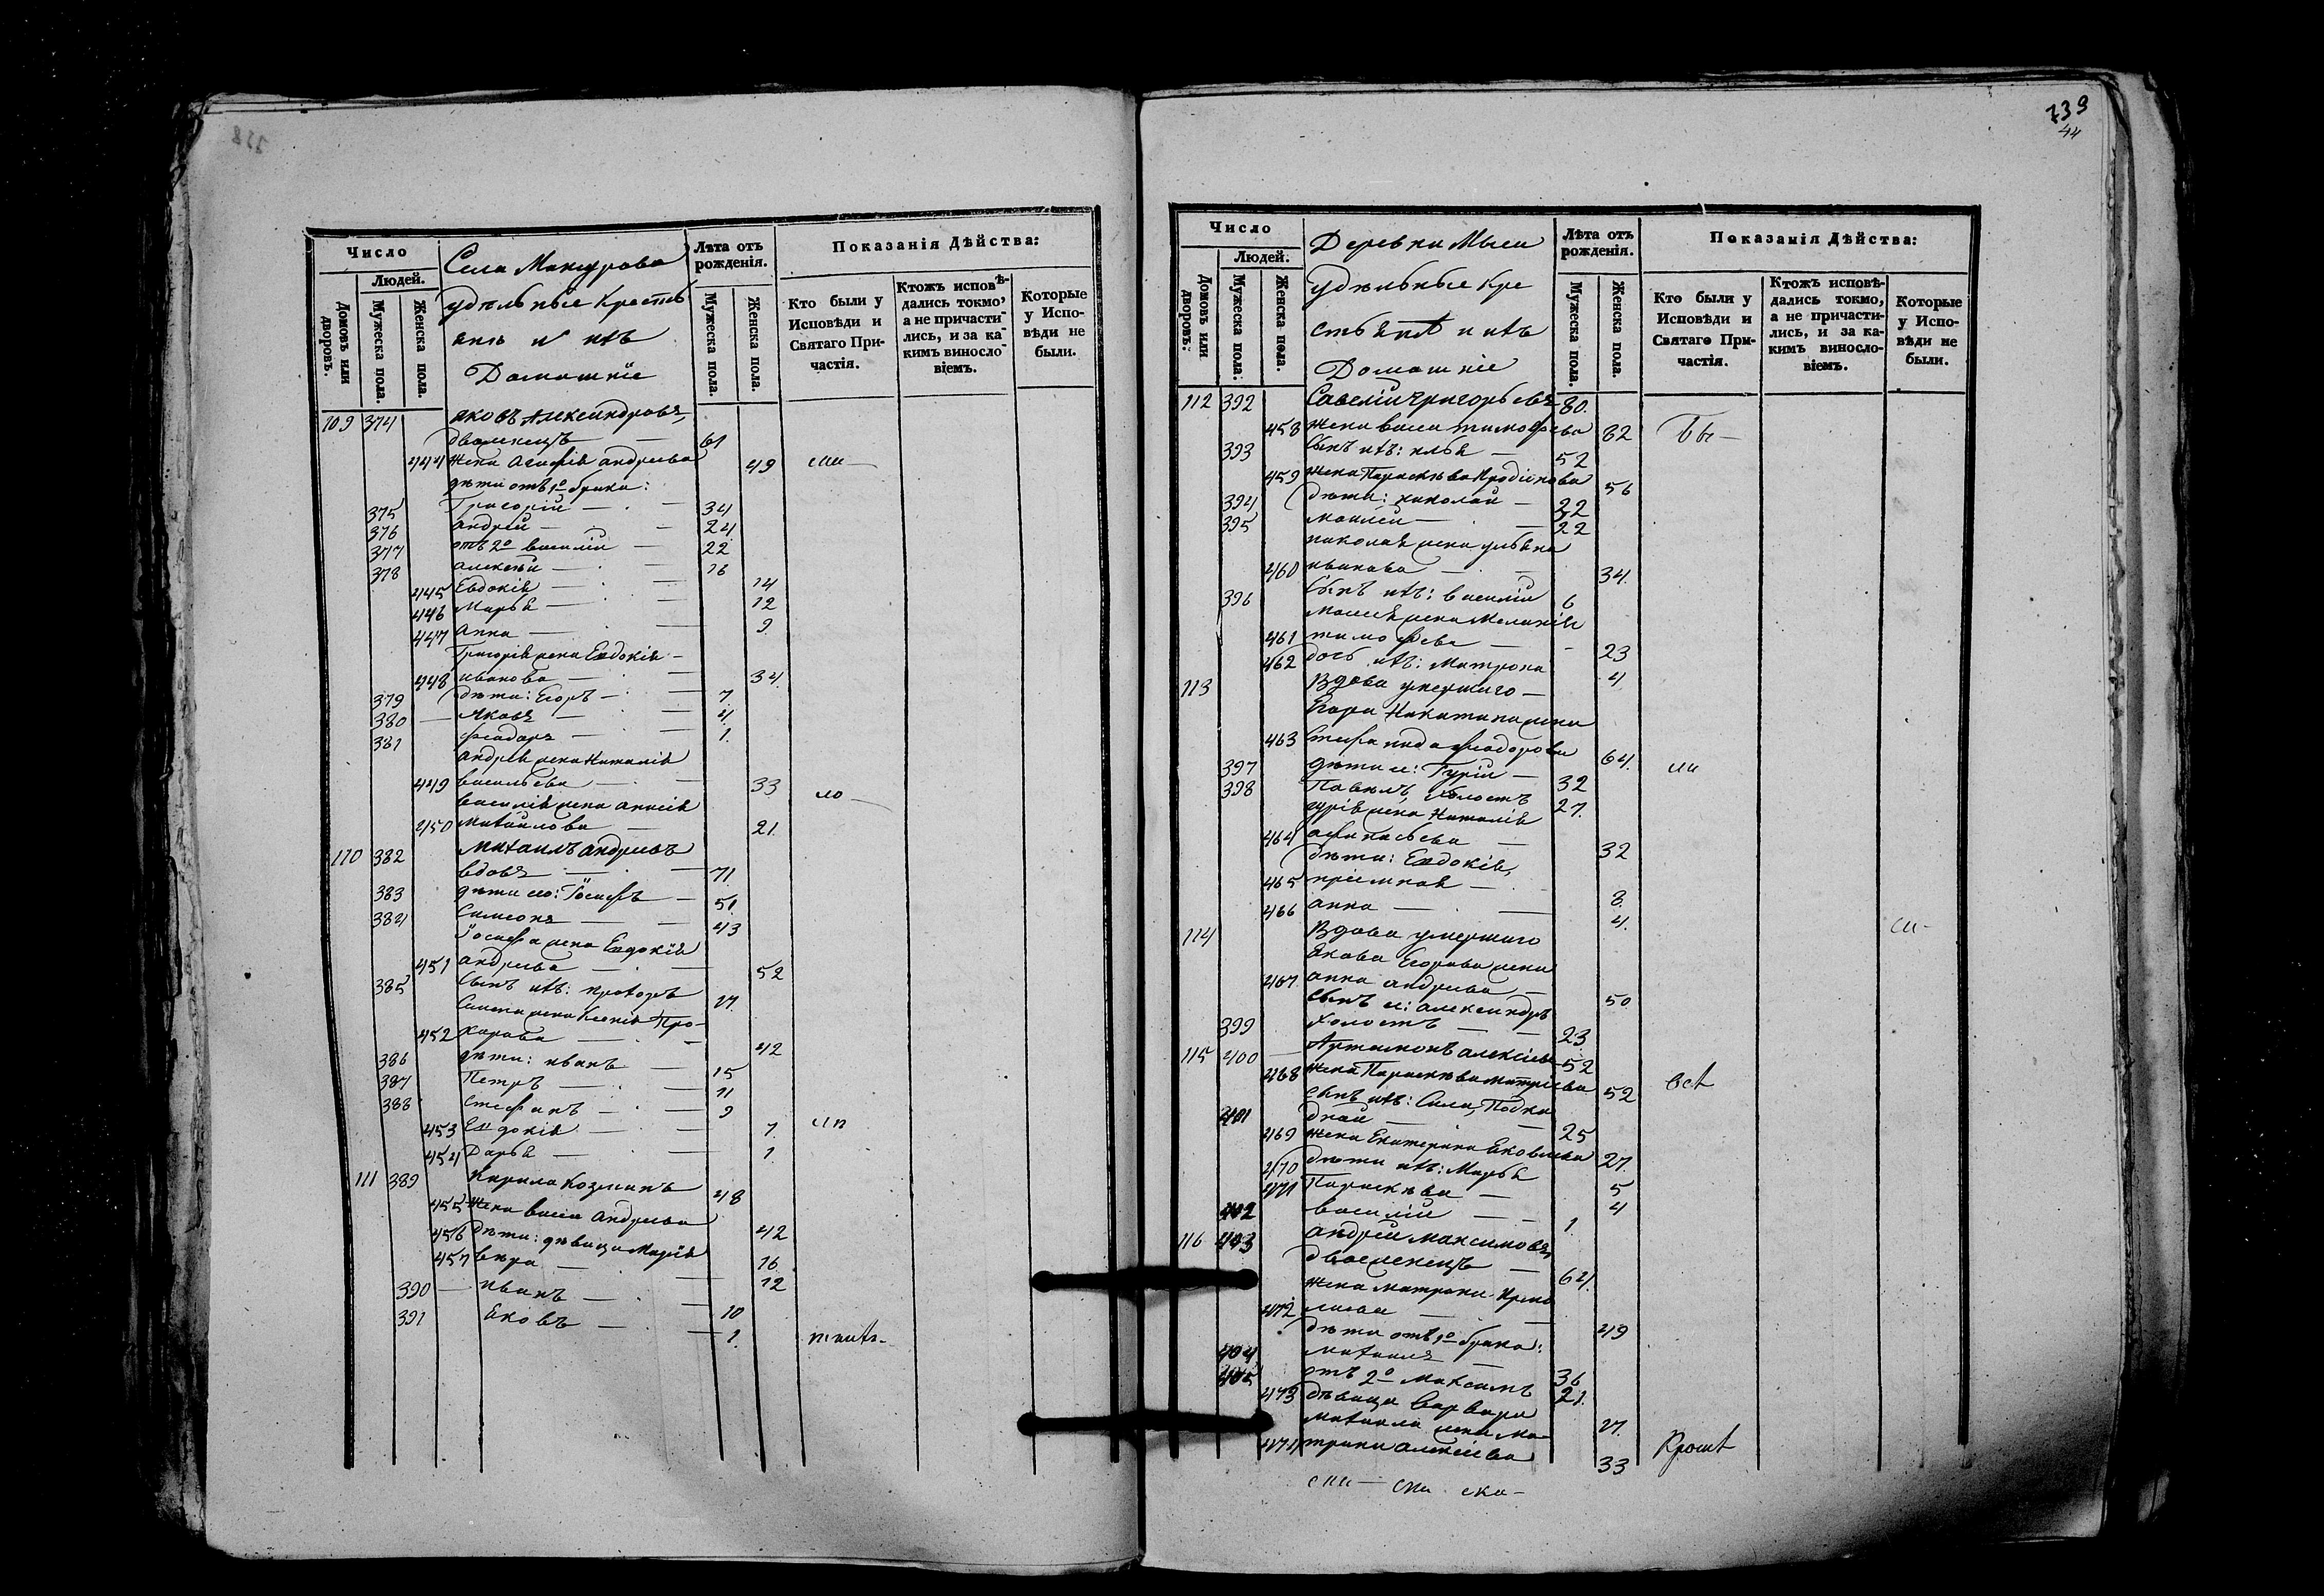 338
Число
Села Манурова
Лѣта отъ рожденія.
Показанія Дѣйства:
Людей.
Домовъ или дворовъ.
Мужеска пола.
Женска пола.
удѣльные крестъ
янѣ и ихъ
Домашніе
Мужеска пола.
Женска пола.
Кто были у Исповѣди и Святаго Причастія.
Ктожъ исповѣдались токмо, а не причастились, и за какимъ винословіемъ.
Которые у Исповѣди не были.
109 374 Яковъ Александровъ,
двоеженецъ — 61
444 Жена Агафія Андреева 49
дѣти отъ 1º брака:
375 Григорій — 34
376 Андрей — 24
377 отъ 2º Василій — 22
378 Алексѣй — 16
445 Евдокія — 14
446 Марья — 12
447 Анна — 9.
Григорія жена Евдокія —
448 Иванова — 34.
379 дѣти: Егоръ — 7
380 — Яковъ — 4.
381 Феодоръ — 1.
Андрея жена Наталія
449 Васильева — 33
Василія жена Анисія
450 Михайлова — 21.
110 382 Михаилъ Андреевъ
вдовъ — 71.
383 дѣти его: Іосифъ — 51.
384 Симеонъ — 43
Іосифа жена Евдокія
451 Андреева — 52
385 Сынъ ихъ: Прохоръ 17.
Симеона жена Ксенія Про-
452 хорова — 42
386 дѣти: Иванъ — 15
387 Петръ — 11
388 Стефанъ — 9
453 Евдокія — 7.
454 Дарья — 1.
111 389 Кирила Козминъ 48
455 Жена Васса Андреева 42
456 Дѣти: дѣвица Марія 16
457 Вѣра — 12
390 — Иванъ — 10
391 Яковъ — 1.
739
44
Число
Деревни Мысы
Лѣта отъ рожденія.
Показанія Дѣйства:
Людей.
Домовъ или дворовъ.
Мужеска пола.
Женска пола.
удѣльные кре
стьянѣ и ихъ
Домашніе
Мужеска пола.
Женска пола.
Кто были у Исповѣди и Святаго Причастія.
Ктожъ исповѣдались токмо, а не причастились, и за какимъ винословіемъ.
Которые у Исповѣди не были.
112 392 Савелій Григорьевъ 80.
458 Жена Васса Тимофеева 82 Бы—
393 Сынъ ихъ: Илья — 52
459 Жена Параскева 56
394 дѣти: Николай — 22
395 Моисей — 22
Николая жена Ульяна
460 Иванова — 34.
396 Сынъ ихъ: Василій 6
Моисея жена Меланія
461 Тимофеева — 23
462 дочь ихъ: Матрона 4,
113 Вдова умершаго —
Егора Никитина жена
463 Стефанида Феодорова 64.
397 дѣти ея: Гурій — 32
398 Павелъ, холостъ 27.
Гурія жена Наталія
464 Афанасьева — 32
дѣти: Евдокія,
465 пріемная — 8.
466 Анна — 4.
114 Вдова умершаго
Якова Егорова жена
467 Анна Андреева — 50.
Сынъ ея: Александръ
399 Холостъ — 23
115 400 — Артемонъ Алексіевъ 52
468 Жена Параскева Матріева 52
сынъ ихъ: Сила, Подки
401 дной — 25
469 Жена Екатерина Яковлева 27.
470 дѣти ихъ: Марья 5
471 Параскева — 4
402 Василій — 1
116 403 Андрей Максимовъ,
двоеженецъ — 64.
Жена Матрона
472 49
дѣти отъ 1º брака:
404 Михаилъ — 36
405 отъ 2º Максимъ 21.
473 дѣвица Варвара 17.
Михаила жена Ма-
474 трона Алексіева 33